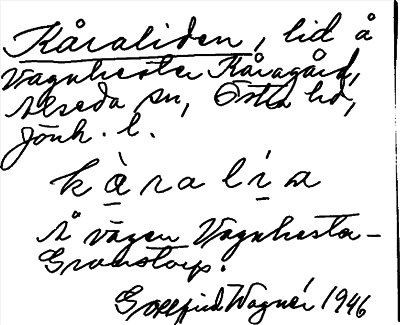 Kåraliden, lid å
Vagnhester Kåragård,
Alseda sn, Östra hd,
Jönk. l.
k à r a l í a
Å vägen Vagnhester-
Granstorp.
Gottfrid Wagnér 1946